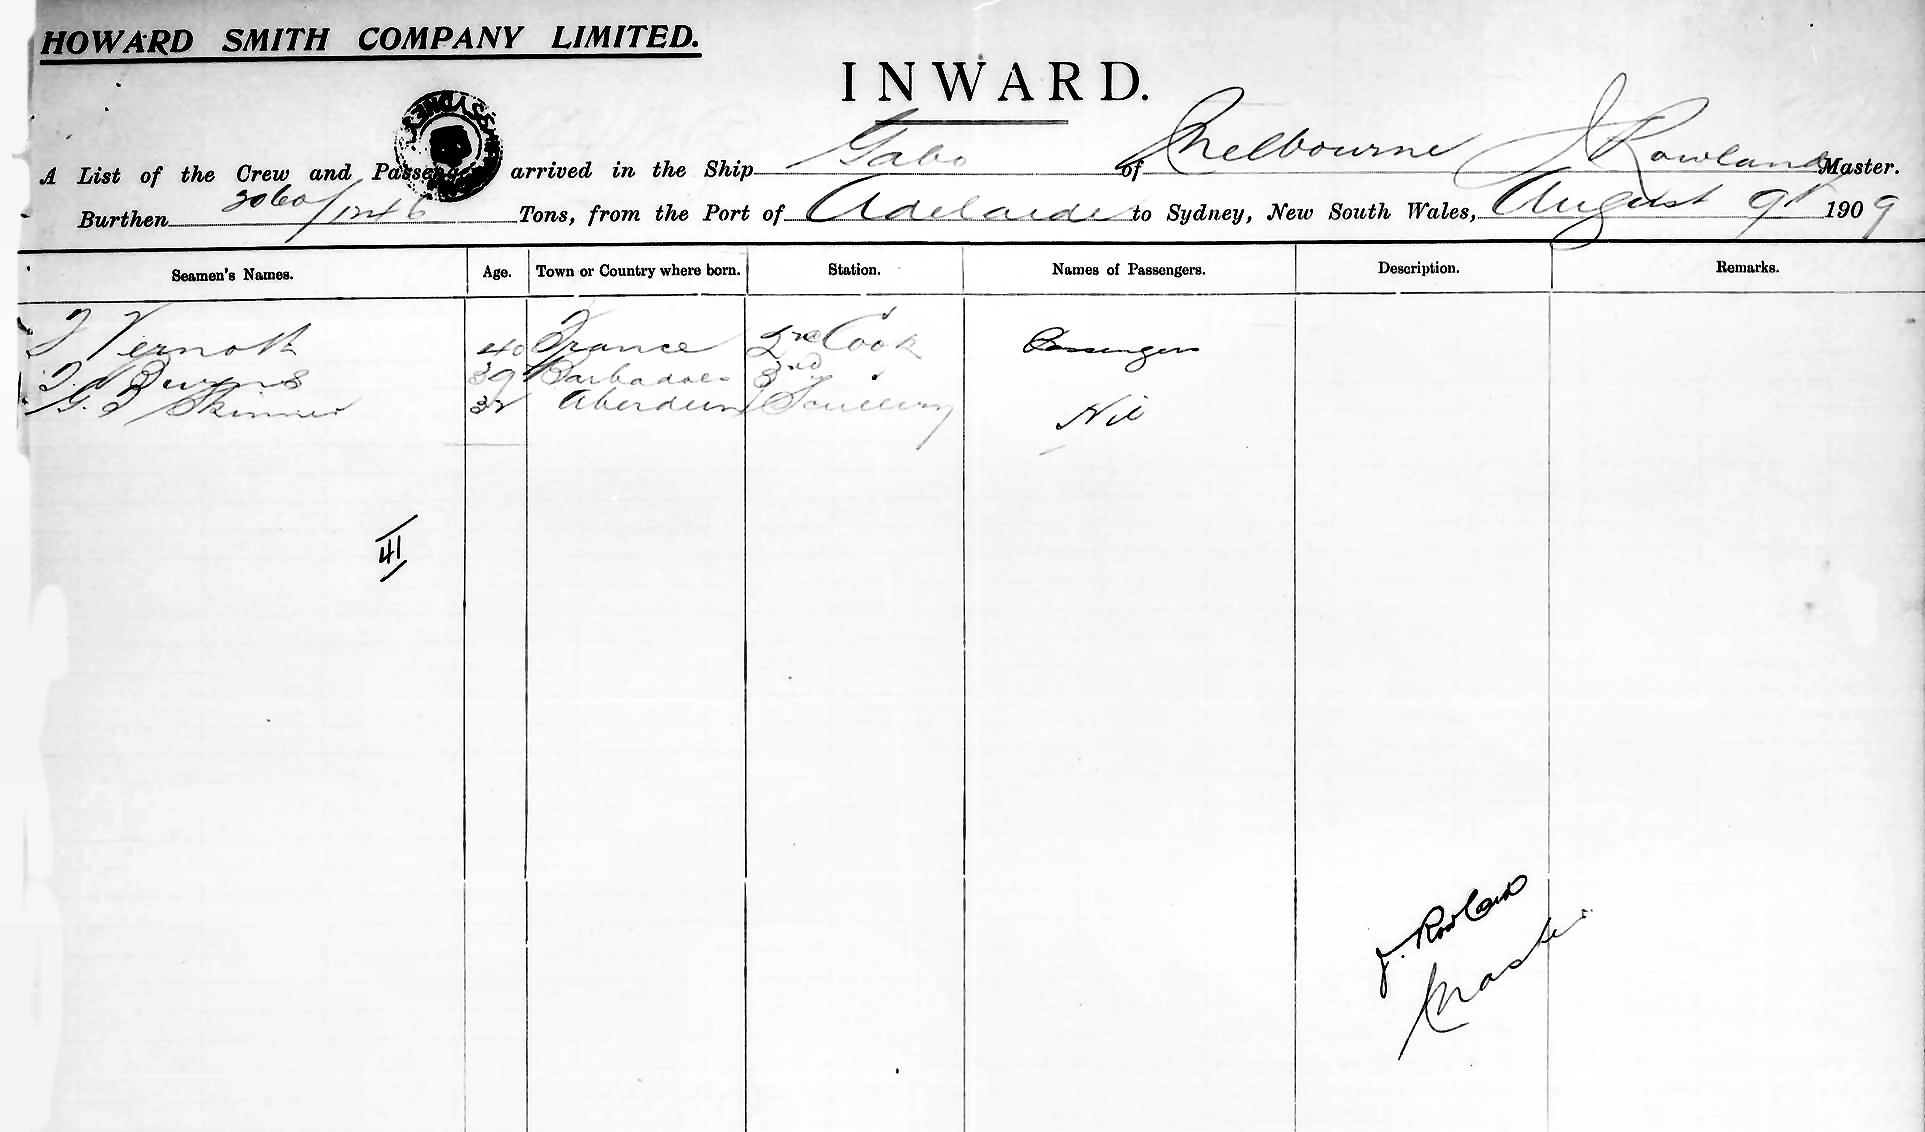 HOWARD SMITH COMPANY LIMITED.
INWARD.
A List of the Crew and Passengers arrived in the Ship Gabo of Melbourne J Rowland Master.
Burthen 3060/1246 Tons, from the Port of Adelaide to Sydney, New South Wales, August 9th 1909
Seamen's Names. Age. Town or Country where born. Station. Names of Passengers. Description. Remarks.
40 France 2nd Cook Passengers
Burns 39 Barbadoes 3rd "
G. Skinner 32 Aberdeen Scullery Nil
41
J. Rowland
Master